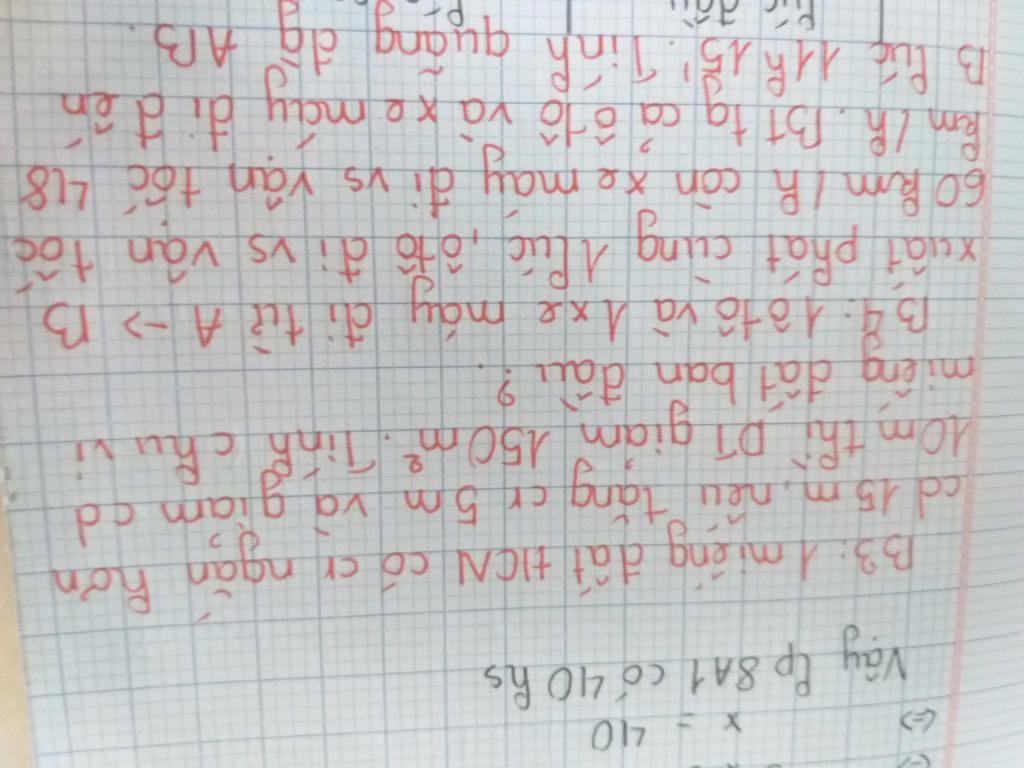 (=)
(=) x = 40
Vậy lp 8A1 có 40 hs
B3: 1 miếng đất HCN có cr ngắn hơn
cd 15m. nếu tăng cr 5m và giảm cd
10m thì DT giảm 150m². Tính chu vi
miếng đất ban đầu?
B4: 1 ô tô và 1 xe máy đi từ A -> B
xuất phát cùng 1 lúc, ô tô đi vs vận tốc
60 km/h còn xe máy đi vs vận tốc 48
km/h. BT tg cả ô tô và xe máy đi đến
B lúc 11h15'. Tính quãng đg AB.